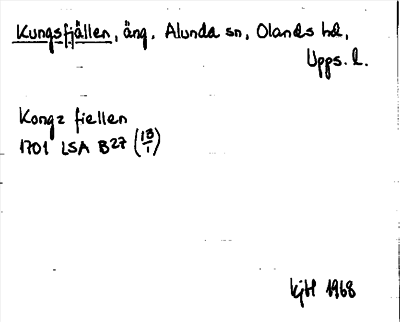 Kungsfjällen, äng, Alunda sn, Olands hd,
Upps. l.
Kongz fiellen
1701 LSA B27 (1B/1)
KjH 1968